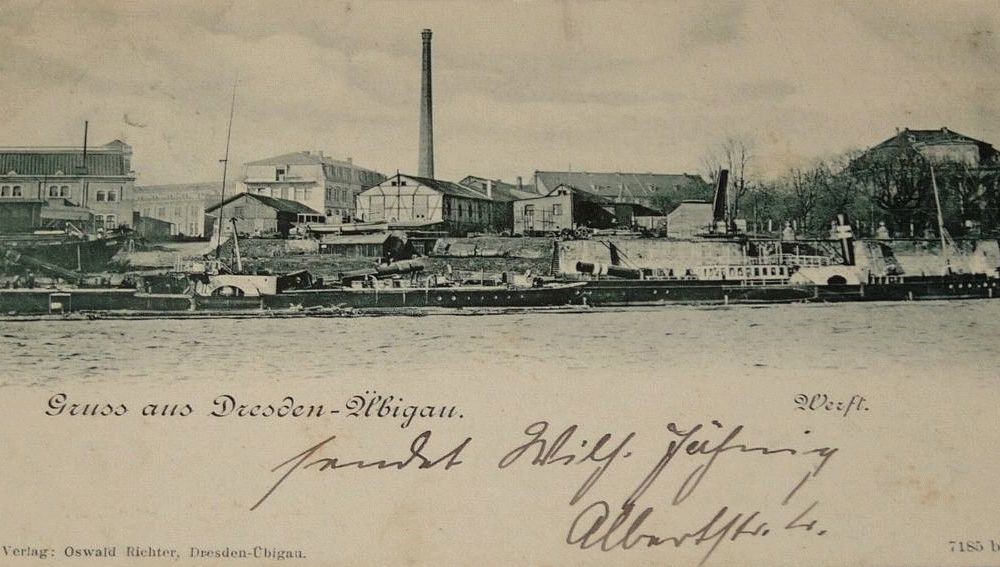 Gruss aus Dresden-Übigau.
Werft.
sendet Wilh. Jähnig
Albertstr.
Verlag: Oswald Richter, Dresden-Übigau.
7185 b